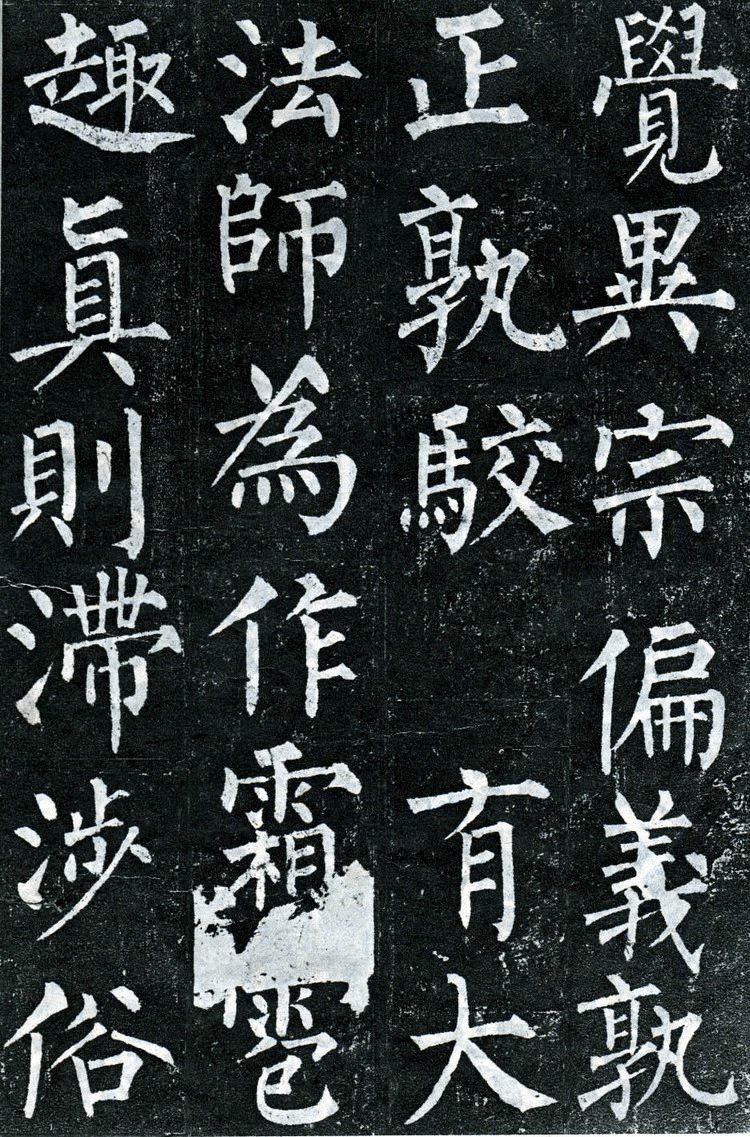 覺異宗偏義孰
正孰駮有大
法師為作霜雹
趣真則滯涉俗